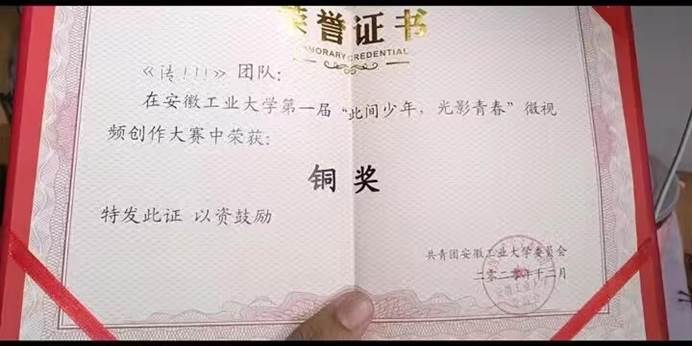 荣誉证书
HONORARY CREDENTIAL
团队:
在安徽工业大学第一届“此间少年,光影青春”微视
频创作大赛中荣获:
铜奖
特发此证 以资鼓励
共青团安徽工业大学委员会
二〇二〇年十二月